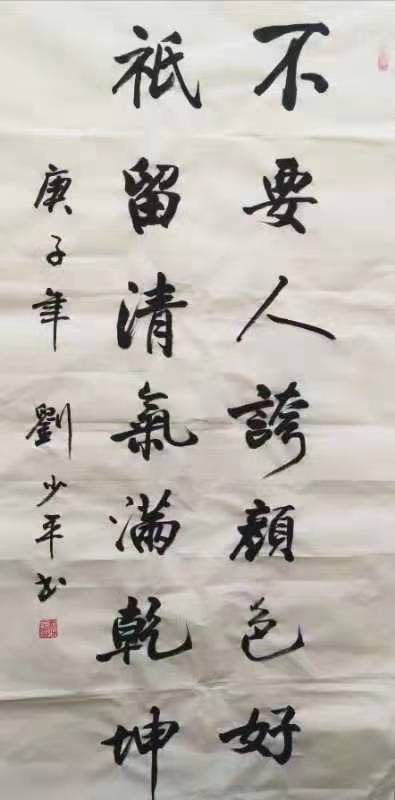 不要人誇顏色好
祇留清氣滿乾坤
庚子年 劉少平書